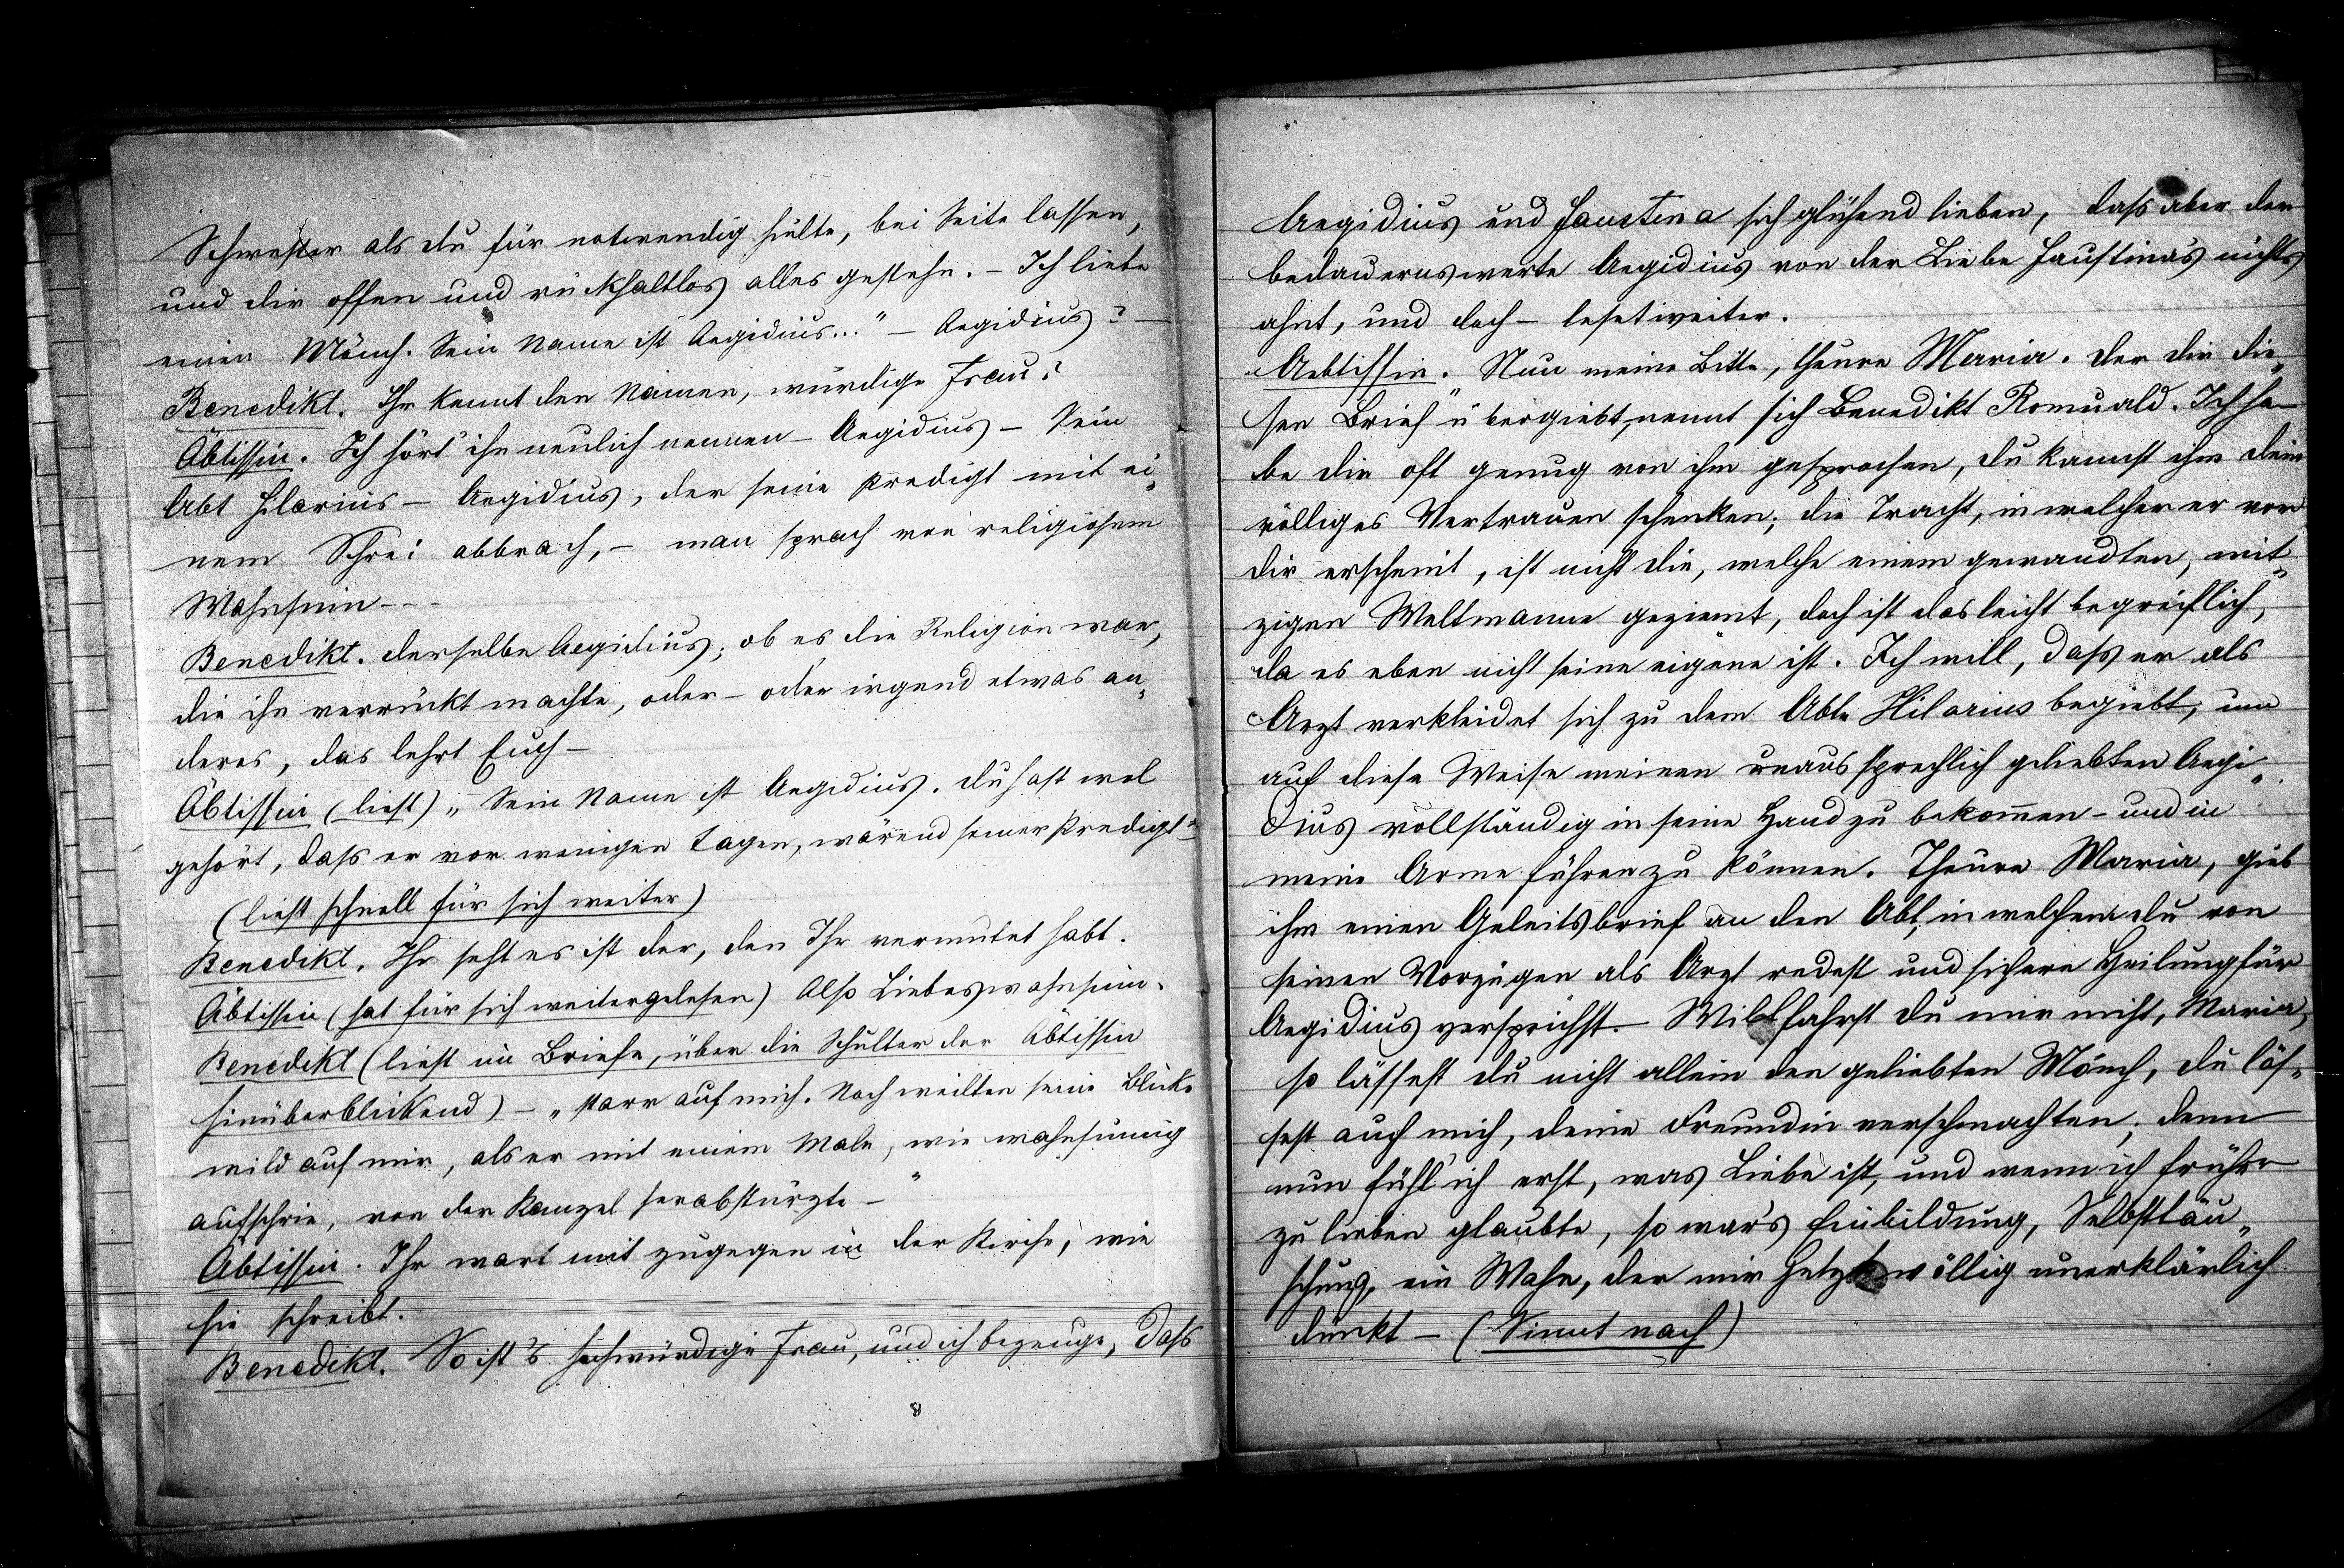 Schwester als du für notwendig hielte, bei Seite lassen,
und dir offen und rückhaltlos alles gestehn. – Ich liebe
einen Mönch. Sein Name ist Aegidius..." – Aegidius? –
Benedikt. Ihr kennt den Namen, würdige Frau?
Äbtissin. Ich hört' ihn neulich nennen – Aegidius – Sein
Abt Hilarius – Aegidius, der seine Predigt mit ei„
nem Schrei abbrach, – man sprach von religiösem
Wahnsinn - - -
Benedikt. derselbe Aegidius; ob es die Religion war,
die ihn verrückt machte, oder – oder irgend etwas an„
deres, das lehrt Euch –
Äbtissin (liest) „Sein Name ist Aegidius. du hast wol
gehört, daß er vor wenigen Tagen, wärend seiner Predigt"
(liest schnell für sich weiter)
Benedikt. Ihr seht es ist der, den Ihr vermutet habt.
Äbtissin (hat für sich weitergelesen) Also Liebeswahnsinn.
Benedikt (liest im Briefe, über die Schulter der Äbtissin
hinüberblickend) – „starr auf mich. Noch weilten seine Blicke
wild auf mir, als er mit einem Male, wie wahnsinnig
aufschrie, von der Kanzel herabstürzte – "
Äbtissin. Ihr wart mit zugegen in der Kirche, wie
sie schreibt.
Benedikt. So ist's hochwürdige Frau, und ich bezeuge, daß
8
Aegidius und Faustina sich glühend lieben, daß aber der
bedauernswerte Aegidius von der Liebe Faustina's nichts
ahnt, und doch – leset weiter.
Aebtissin. „Nun meine Bitte, theure Maria. der dir die„
sen Brief übergiebt, nennt sich Benedikt Romuald. Ich ha–
be dir oft genug von ihm gesprochen, du kannst ihm dein
völliges Vertrauen schenken; die Tracht, in welcher er vor
dir erscheint, ist nicht die, welche einem gewandten, wit„
zigen Weltmanne geziemt, doch ist das leicht begreiflich,
da es eben nicht seine eigene ist. Ich will, daß er als
Arzt verkleidet sich zu dem Abte Hilarius begiebt, um
auf diese Weise meinen unaussprechlich geliebten Aegi„
dius vollständig in seine Hand zu bekom̄en – und in
meine Arme führen zu können. Theure Maria, gieb
ihm einen Geleitsbrief an den Abt, in welchem du von
seinen Vorzügen als Arzt redest und sichere Heilung für
Aegidius versprichst. – Willfahrst du mir nicht, Maria,
so lässest du nicht allein den geliebten Mönch, du läs„
sest auch mich, deine Freundin verschmachten; denn
nun fühl' ich erst, was Liebe ist, und wenn ich früher
zu lieben glaubte, so war's Einbildung, Selbsttäu„
schung, ein Wahn, der mir jetzt völlig unerklärlich
dünkt – (Sinnt nach)